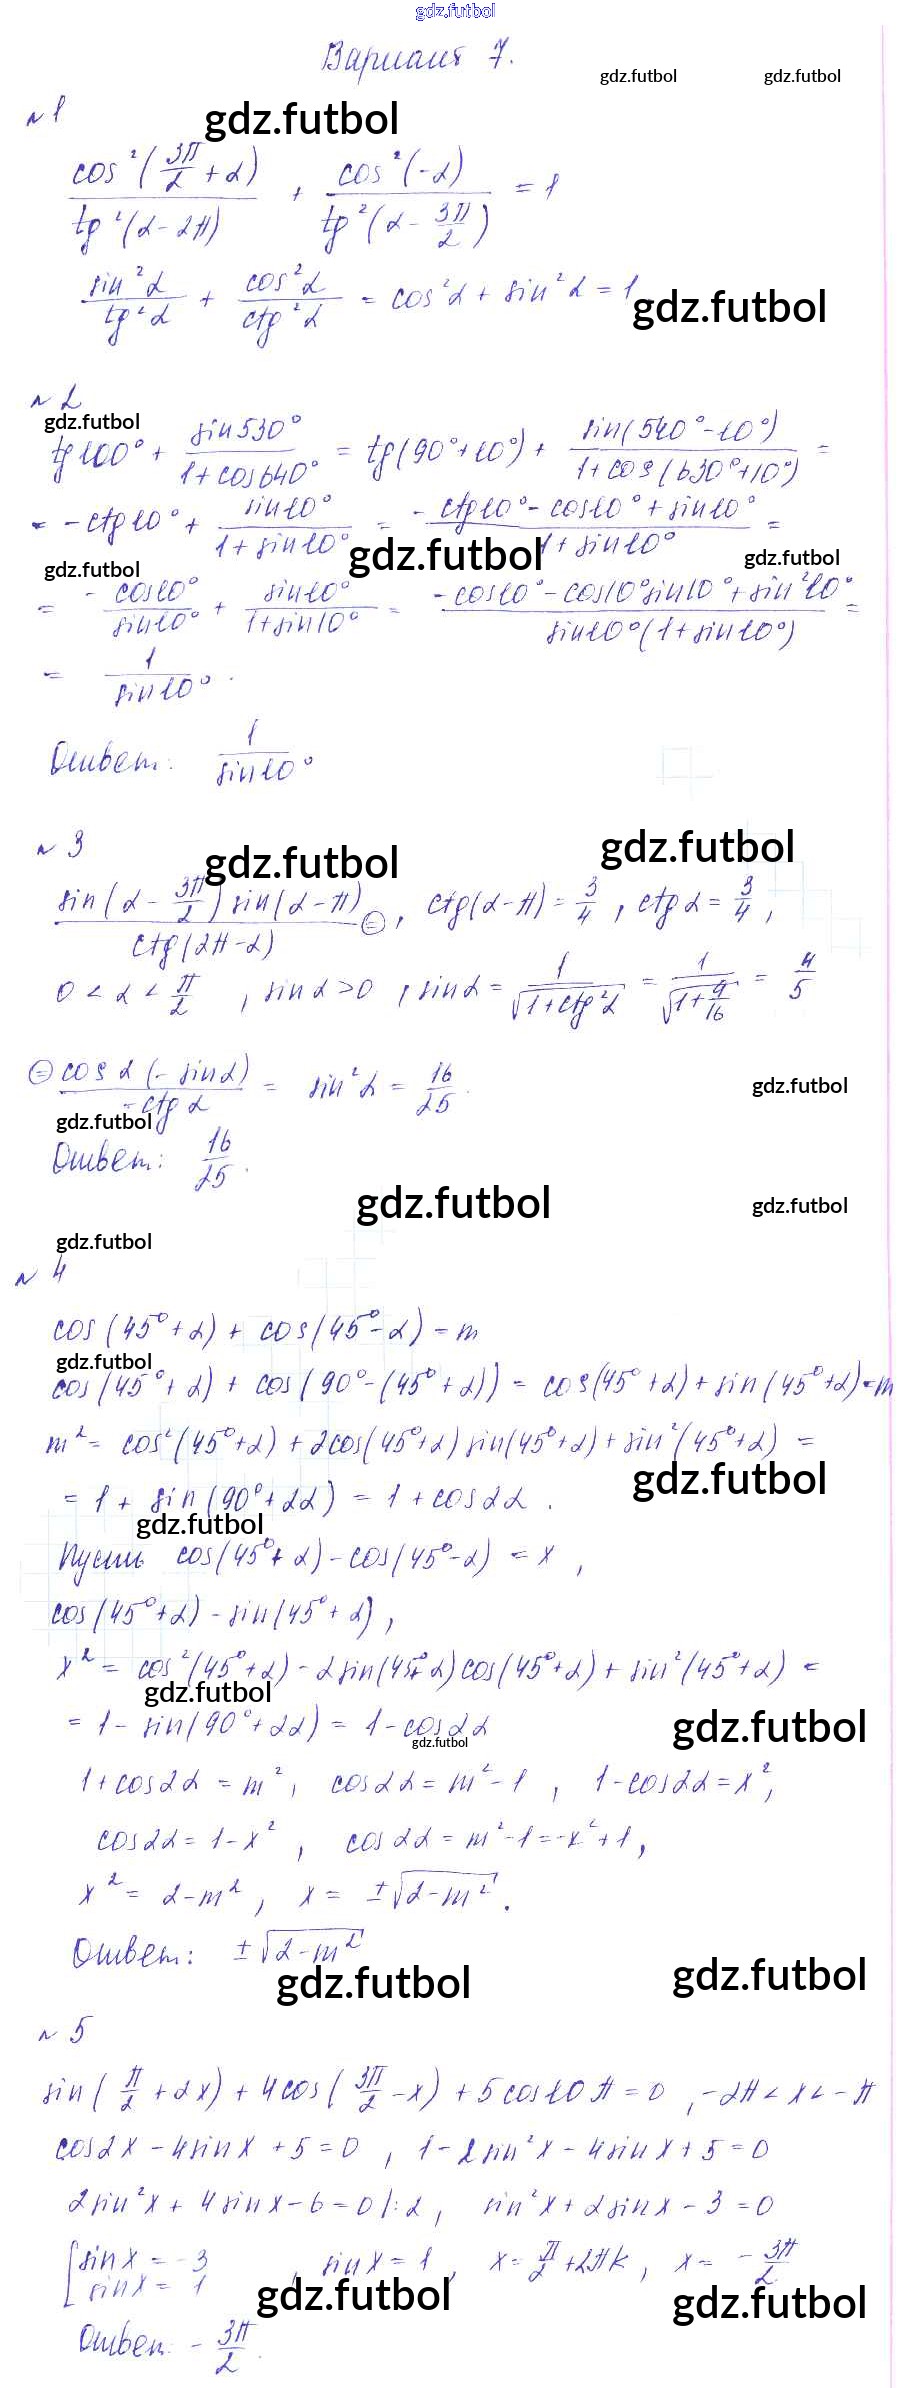 gdz.futbol
Вариант 7.
gdz.futbol gdz.futbol
№1
gdz.futbol
cos²(3π/2 + α) / tg²(α - 2π) + cos²(-α) / tg²(α - 3π/2) = 1
sin²α / tg²α + cos²α / ctg²α = cos²α + sin²α = 1
gdz.futbol
№2
gdz.futbol
tg100° + sin530° / 1 + cos640° = tg(90° + 10°) + sin(540° - 10°) / 1 + cos(630° + 10°) =
= -ctg10° + sin10° / 1 + sin10° = -ctg10° - cos10° + sin10° / 1 + sin10° =
gdz.futbol
gdz.futbol gdz.futbol
= - cos10° / sin10° + sin10° / 1 + sin10° = -cos10° - cos10°sin10° + sin²10° / sin10°(1 + sin10°) =
= 1 / sin10°.
Ответ: 1 / sin10°
№3
gdz.futbol gdz.futbol
sin(α - 3π/2) sin(α - π) / ctg(2π - α) ⊜, ctg(α - π) = 3/4, ctgα = 3/4,
0 < α < π/2, sinα > 0, sinα = 1 / √1 + ctg²α = 1 / √1 + 9/16 = 4/5
⊜ cosα (- sinα) / -ctgα = sin²α = 16/25.
gdz.futbol
gdz.futbol
Ответ: 16/25.
gdz.futbol gdz.futbol
gdz.futbol
№4
cos(45° + α) + cos(45° - α) = m
gdz.futbol
cos(45° + α) + cos(90° - (45° + α)) = cos(45° + α) + sin(45° + α) = m
m² = cos²(45° + α) + 2cos(45° + α) sin(45° + α) + sin²(45° + α) =
gdz.futbol
= 1 + sin(90° + 2α) = 1 + cos2α.
gdz.futbol
Пусть cos(45° + α) - cos(45° - α) = x,
cos(45° + α) - sin(45° + α),
x² = cos²(45° + α) - 2sin(45° + α) cos(45° + α) + sin²(45° + α) =
gdz.futbol
= 1 - sin(90° + 2α) = 1 - cos2α
gdz.futbol
gdz.futbol
1 + cos2α = m², cos2α = m² - 1, 1 - cos2α = x²,
cos2α = 1 - x², cos2α = m² - 1 = -x² + 1,
x² = 2 - m², x = ±√2 - m².
Ответ: ±√2 - m²
gdz.futbol gdz.futbol
№5
sin(π/2 + 2x) + 4cos(3π/2 - x) + 5cos10π = 0, -2π < x < -π
cos2x - 4sinx + 5 = 0, 1 - 2sin²x - 4sinx + 5 = 0
2sin²x + 4sinx - 6 = 0 |:2, sin²x + 2sinx - 3 = 0
[sinx = -3
sinx = 1, sinx = 1, x = π/2 + 2πk, x = -3π/2
gdz.futbol gdz.futbol
Ответ: -3π/2.